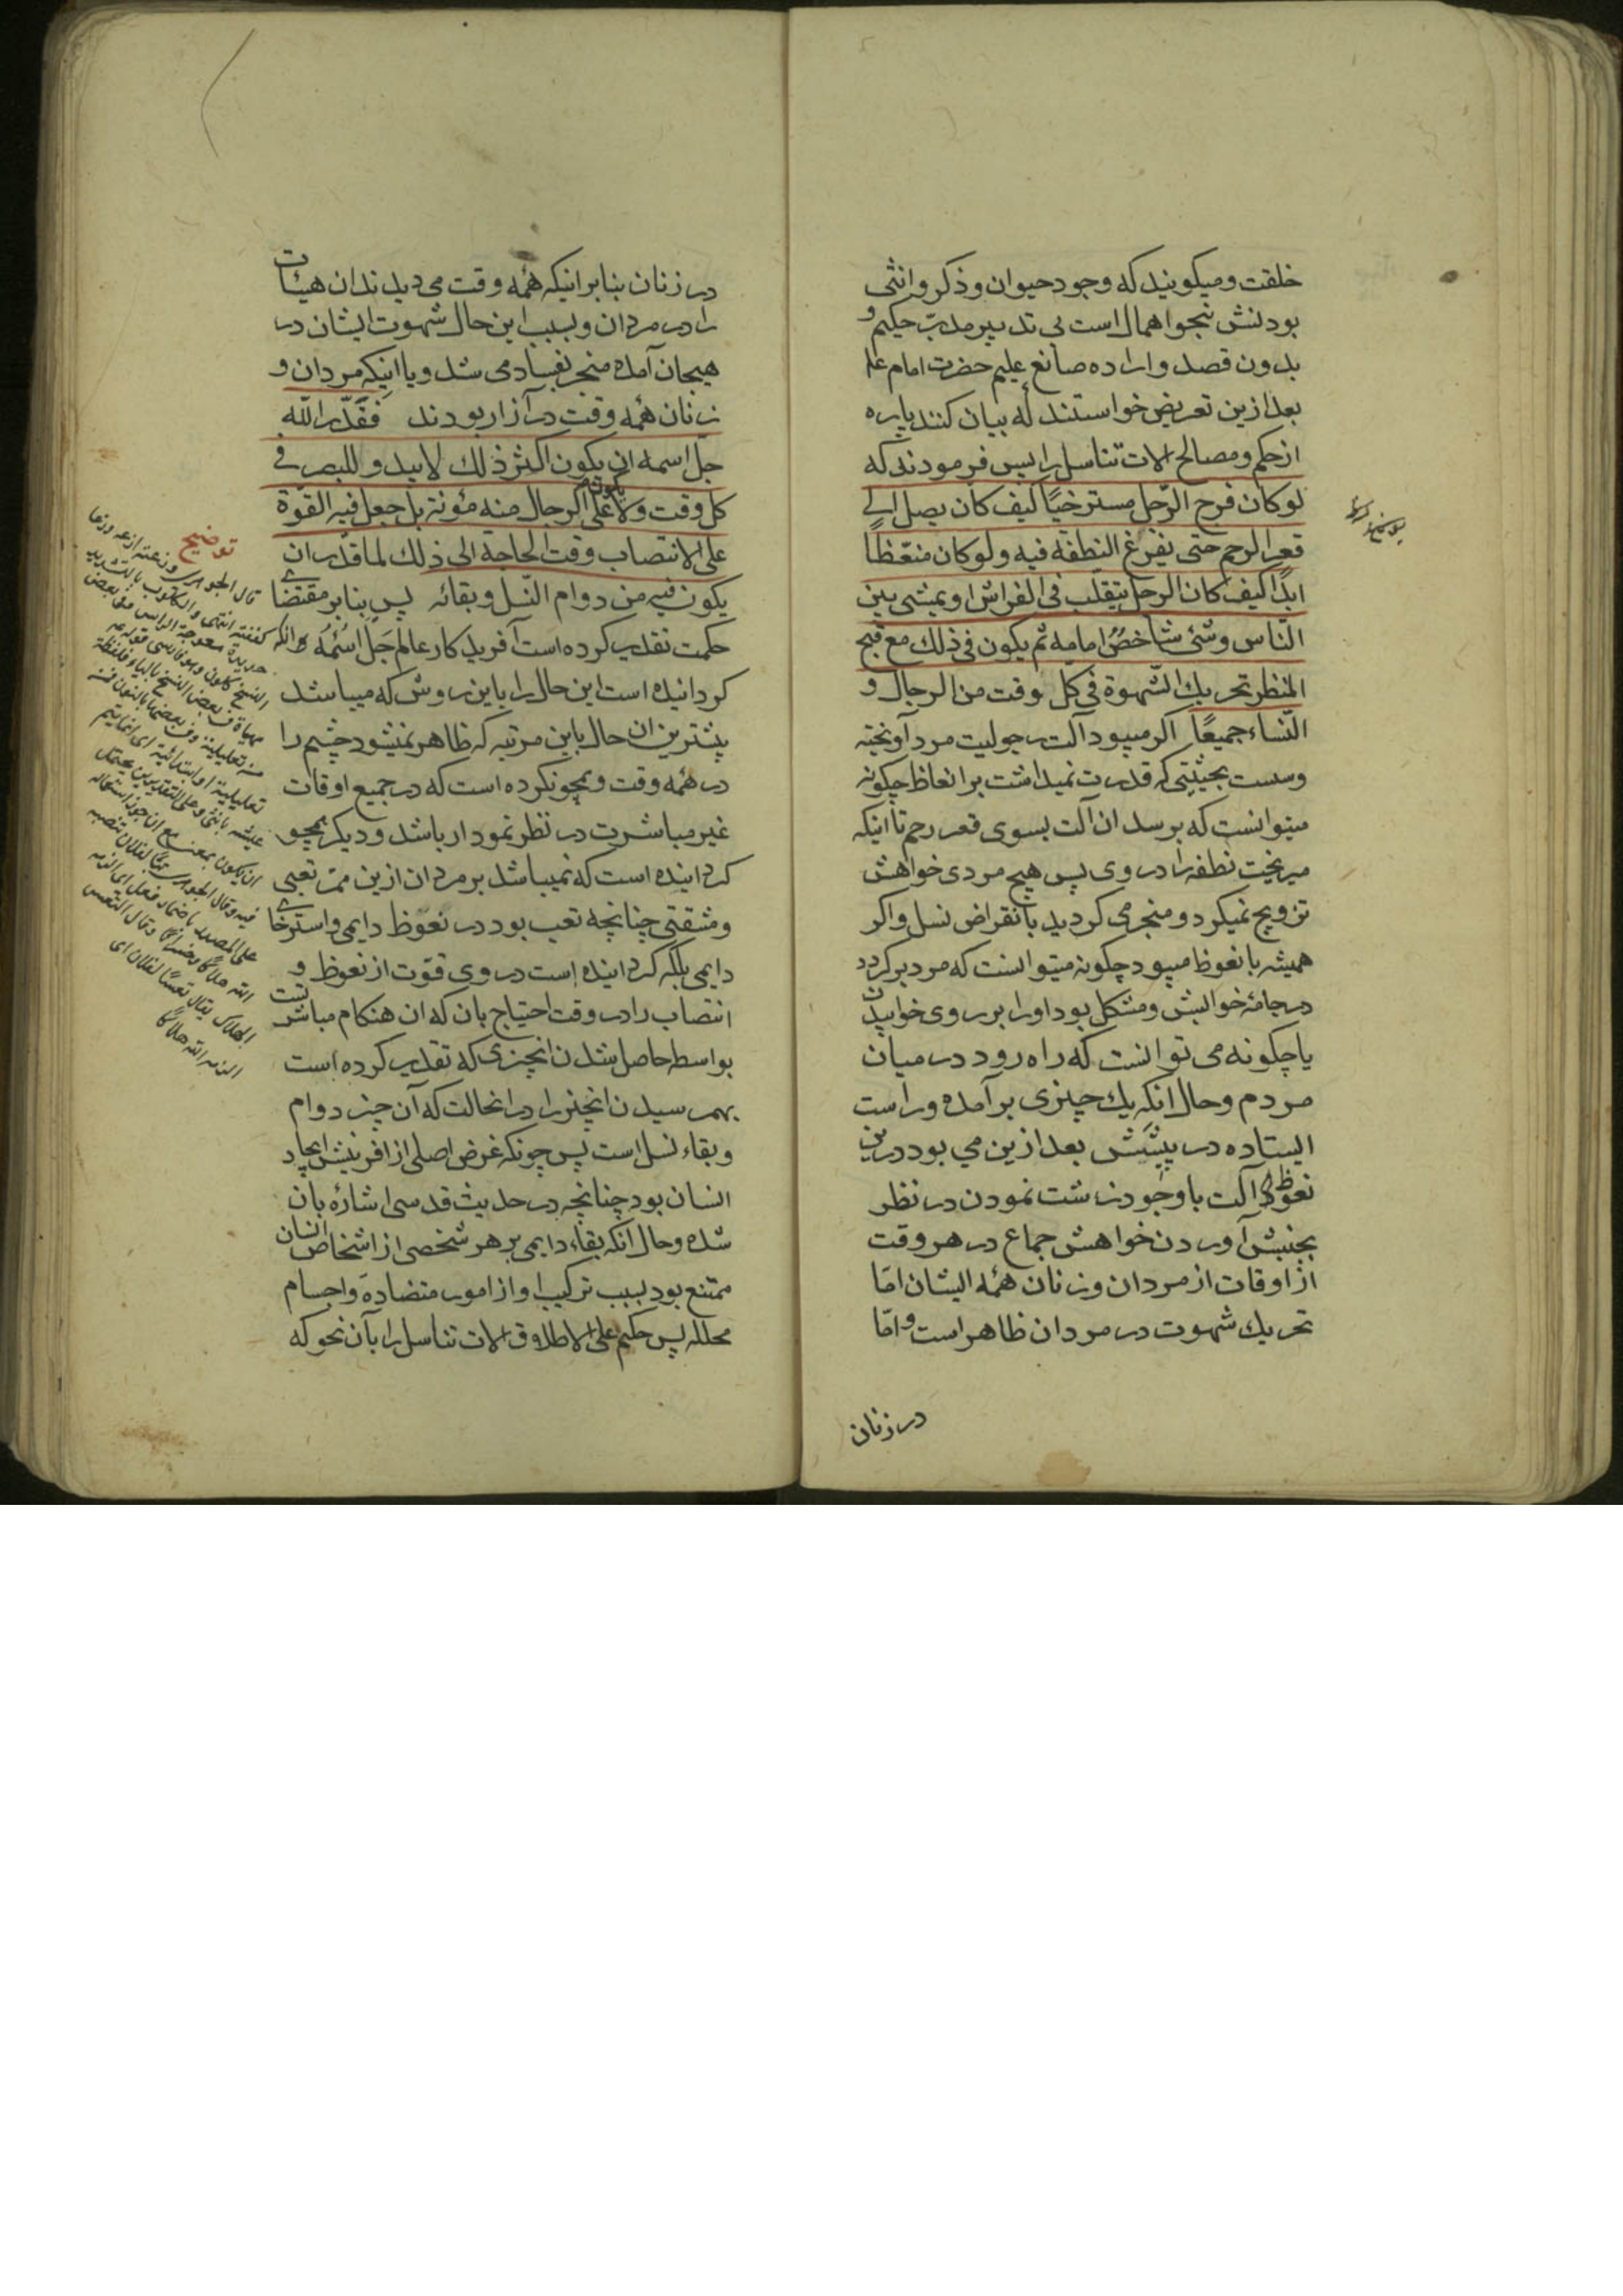 خلقت و میکویند که وجود حیوان و ذکر و انثی
بودنش بنحو اهمال است بی تدبیر مدبّر حکیم و
بدون قصد و اراده صانع علیم حضرت امام علیه
بعد ازین تعریض خواستند که بیان کنند پاره
از حکم و مصالح الات تناسل را پس فرمودند که
لو کان فرج الرّجل مسترخیًا کیف کان یصل الی
قعر الرحم حتی یفرغ النطفة فیه و لو کان منعّظًا
ابدًا کیف کان الرجل یتقلب فی الفراش او یمشی بین
النّاس و شئ شاخصٌ امامه ثم یکون فی ذلك مع قبح
المنظر تحریك الشّهوة فی کل وقت من الرجال و
النّساء جمیعًا اکر میبود آلت رجولیت مرد آویخته
و سست بحیثیتی که قدرت نمیداشت بر انعاظ چکونه
میتوانست که برسد ان آلت بسوی قعر رحم تا اینکه
میریخت نطفه را در وی پس هیچ مردی خواهش
تزویج نمیکرد و منجر می کردید بانقراض نسل و اکر
همیشه با نعوظ میبود چکونه میتوانست که مرد بر کردد
در جامهٔ خوابش و مشکل بود او را بر روی خوابیدن
یا چکونه می توانست که راه رود در میان
مردم و حال انکه یك چیزی بر آمده و راست
ایستاده در پیشش بعد ازین می بود درین
نعوظ آلت با وجود زشت نمودن در نظر
بجنبش آوردن خواهش جماع در هر وقت
از اوقات از مردان و زنان همه ایشان امّا
تحریك شهوت در مردان ظاهر است و امّا
در زنان
در زنان بنابر انیکه همه وقت می دیدند ان هیئات
را در مردان و بسبب این حال شهوت ایشان در
هیجان آمده منجر بفساد می شد و یا اینکه مردان و
زنان همه وقت در آزار بودند فَقَدّر الله
جلّ اسمه ان یکون اکثر ذلك لا یبدو للبصر فی
کل وقت و لا یکون علی الرجال منه مؤنة بل جعل فیه القوّة
علی الانتصاب وقت الحاجة الی ذلك لما قدّر ان
یکون فیه من دوام النّسل و بقائه پس بنابر مقتضای
حکمت تقدیر کرده است آفریدکار عالم جَلّ اسْمُهُ
کردانیده است این حال را باین روش که میباشد
بیشترین ان حال باین مرتبه که ظاهر نمیشود چشم را
در همه وقت و همچو نکرده است که در جمیع اوقات
غیر مباشرت در نظر نمودار باشد و دیکر همچو
کردانیده است که نمیباشد بر مردان ازین ممر تعبی
و مشقتی چنانچه تعب بود در نعوظ دایمی و استرخای
دایمی بلکه کردانیده است در وی قوّت از نعوظ و
انتصاب را در وقت احتیاج بان که ان هنکام مباشرتست
بواسطه حاصل شدن انچیزی که تقدیر کرده است
بهم رسیدن انچیز را در انحالت که آن چیز دوام
و بقاء نسل است پس چونکه غرض اصلی از افرینش ایجاد
انسان بود چنانچه در حدیث قدسی اشاره بان
شده و حال انکه بقاء دایمی بر هر شخصی از اشخاص انسان
ممتنع بود بسبب ترکیب او از امور متضاده و اجسام
محلله پس حکیم علی الاطلاق الات تناسل را بآن نحو که
توضیح